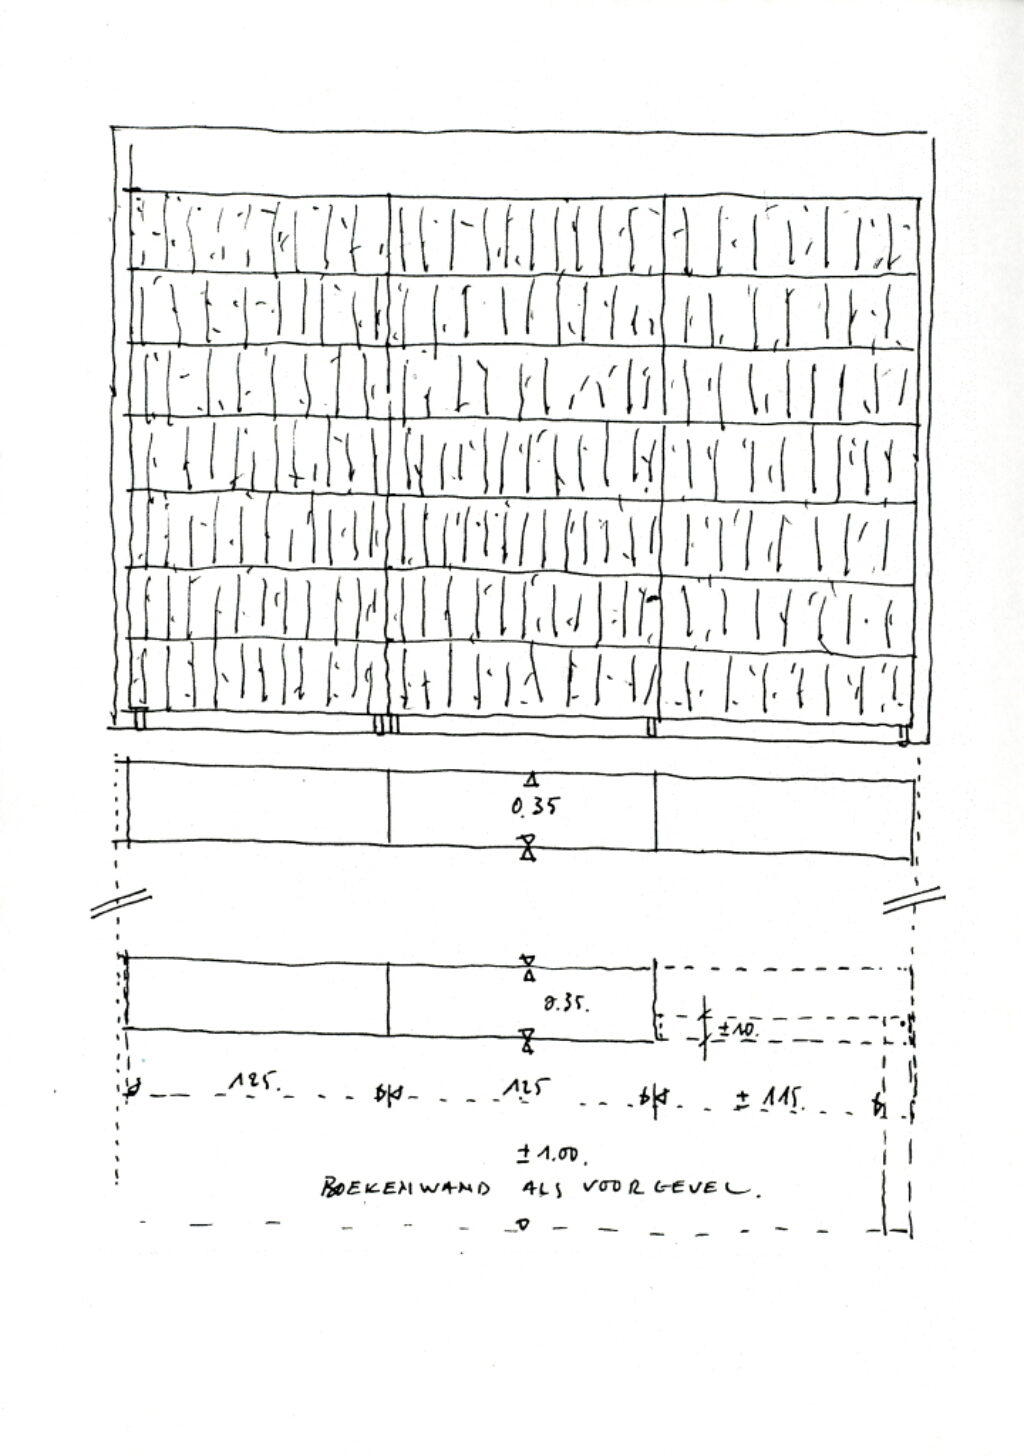 0.35
0.35.
±10.
125.
125
± 115.
± 1.00.
BOEKENWAND ALS VOORGEVEL.